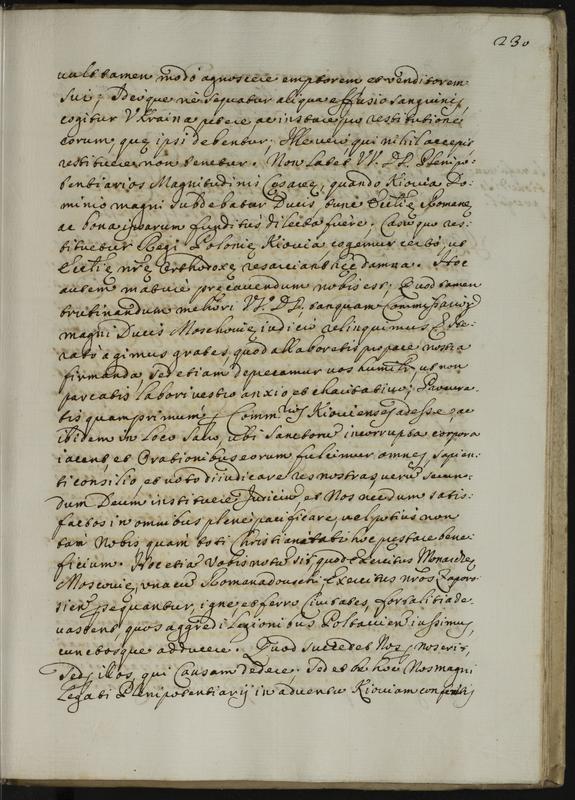 230
uult tamen modò agnoscere emptorem et venditorem
sui; Ideoque nè sequatur aliqua effusio sanguinis,
cogitur Vkraina petere ac instare pro restitutione
eorum quę ipsi debentur. Ille verò qui nihil accepit
restituere non tenetur. Non latet VV. DD. Plenipo-
tentiarios Magnitudinis Cęsareę, quando Kiouia Do-
minio magni subdebatur Ducis, tunc Eccłię Romanę
ac bona ipsarum funditùs deleta fuere. Casu quo res-
tituetur Regi Polonię Kiouia cogemur certò, ut
Eccłię nrę Orthodoxę resarciantur damna. Hoc
autem maturè pręcauendum nobis est, Quod tamen
trutinandum meliori VV. DD, tanquam Commissariorũ
magni Ducis Moschouię iudicio relinquimus
agimus grates, quod allaboretis pro pace nostra
firmanda sed etiam deprecamur uos humiłł, ut non
parcatis labori vestro anxio et charitatiuo; Procura-
tis quam primum, Commrios Kiouienses adesse, ac
ibidem in Loco Sacro, ubi Sanctorũ incorrupta corpora
iacent, et Orationibus eorum fulcimur omnes sapien-
ti consilio et uoto diiudicare res nostras uerũ secun-
dum Deum instituere Judiciũ et Nos necdum satis-
factos in omnibus plenè pacificare, uel potius non
tam Nobis quam toti Christianitati hoc pręstare bene-
ficium. Hoc etiã Vobis notũ sit, quod Exercitus Monarchę
Moscouię, unacũ Romanadouschi Exercitus nros Zaporo-
sien pseąuantur, igne et ferro Ciuitates, fortalitia de-
uastent, quos aggredi legionibus Poltauien iussimus,
cunctosque adducere. Quod succedet Nos, nos erit,
Sed illos, qui Causam dedere. Sed et hoc Nos magni
Legati Plenipotentiarij in aduentu Kiouiam